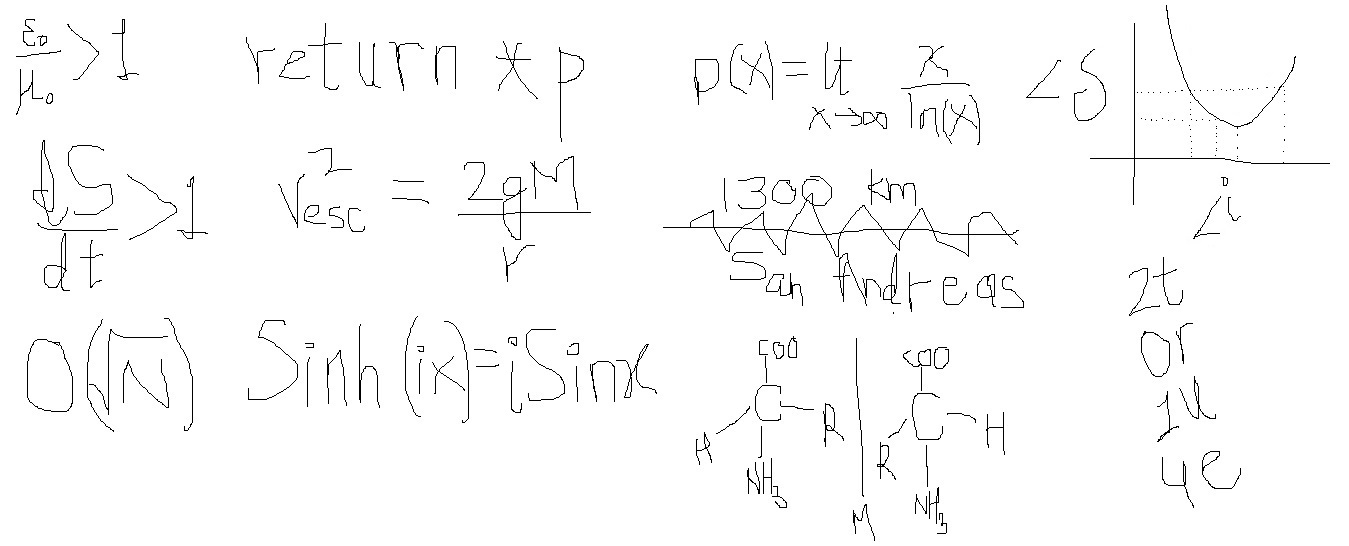 ε₀/μ₀ > 1
return *p
p(x) = lt x→∞ x/ln(x)
< δ
dS/dt > 1
v²esc = 2gM/r
1300 km
San Andreas
< i
O(√N)
Sinh(ix) = iSinx
COO
H C R
NH₃
M
COO
R C H
NH₃
2t
or
1u
4e